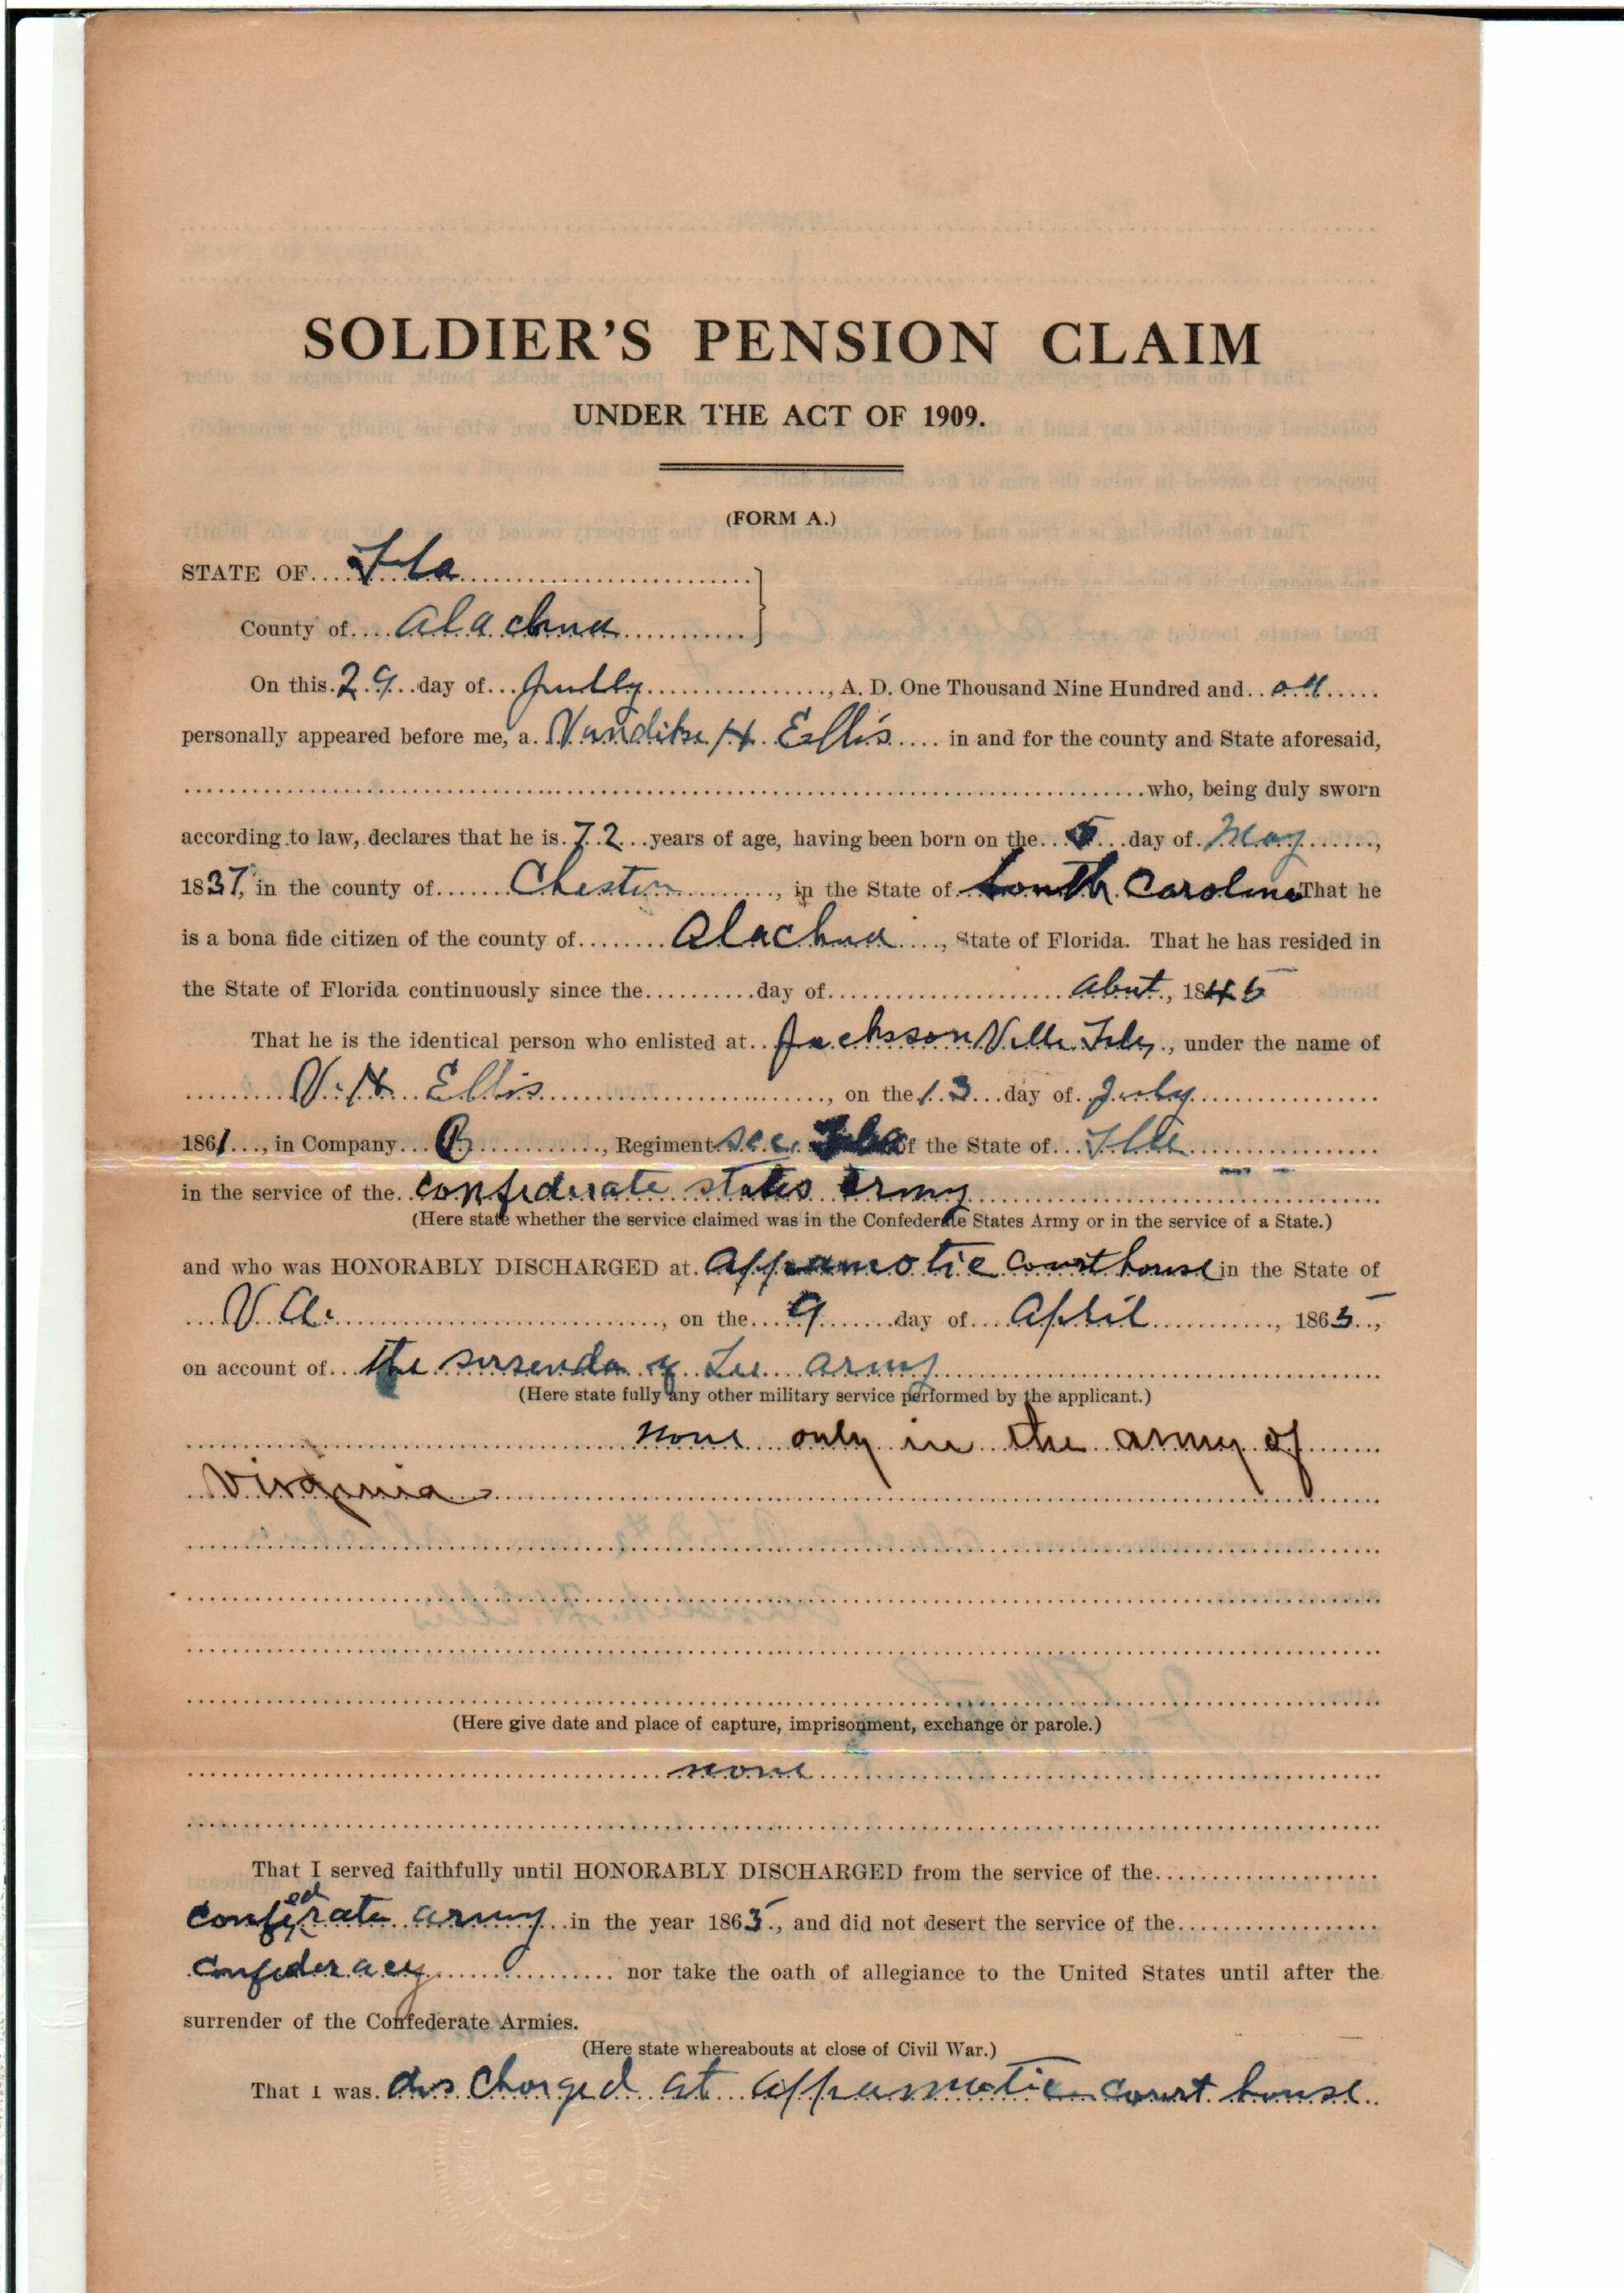 SOLDIER'S PENSION CLAIM
UNDER THE ACT OF 1909.
(FORM A.)
STATE OF Fla
County of Alachua
On this 29 day of , A. D. One Thousand Nine Hundred and
personally appeared before me, a H Ellis in and for the county and State aforesaid,
who, being duly sworn
according to law, declares that he is 72 years of age, having been born on the 5 day of May,
1837, in the county of Chester, in the State of South Carolina That he
is a bona fide citizen of the county of Alachua, State of Florida. That he has resided in
the State of Florida continuously since the day of abut, 184
That he is the identical person who enlisted at JacksonVille, under the name of
V. H Ellis, on the 13 day of July
1861, in Company B, Regiment sec. Fla of the State of Fla
in the service of the confederate states army
(Here state whether the service claimed was in the Confederate States Army or in the service of a State.)
and who was HONORABLY DISCHARGED at appamotic Court house in the State of
Va., on the 9 day of April, 1865,
on account of the of Lee army
(Here state fully any other military service performed by the applicant.)
none only in the army of
Virginia
(Here give date and place of capture, imprisonment, exchange or parole.)
none
That I served faithfully until HONORABLY DISCHARGED from the service of the
army in the year 1865., and did not desert the service of the
Confederacy nor take the oath of allegiance to the United States until after the
surrender of the Confederate Armies.
(Here state whereabouts at close of Civil War.)
That I was dis Charged at appamotic court house